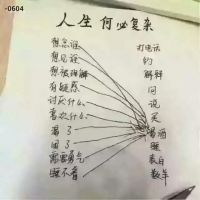 -0604
人生何必复杂
想念谁 打电话
想见谁 约
想被理解 解释
有疑惑 问
讨厌什么 说
喜欢什么 买
渴了 喝酒
困了 睡
需要勇气 表白
睡不着 数羊